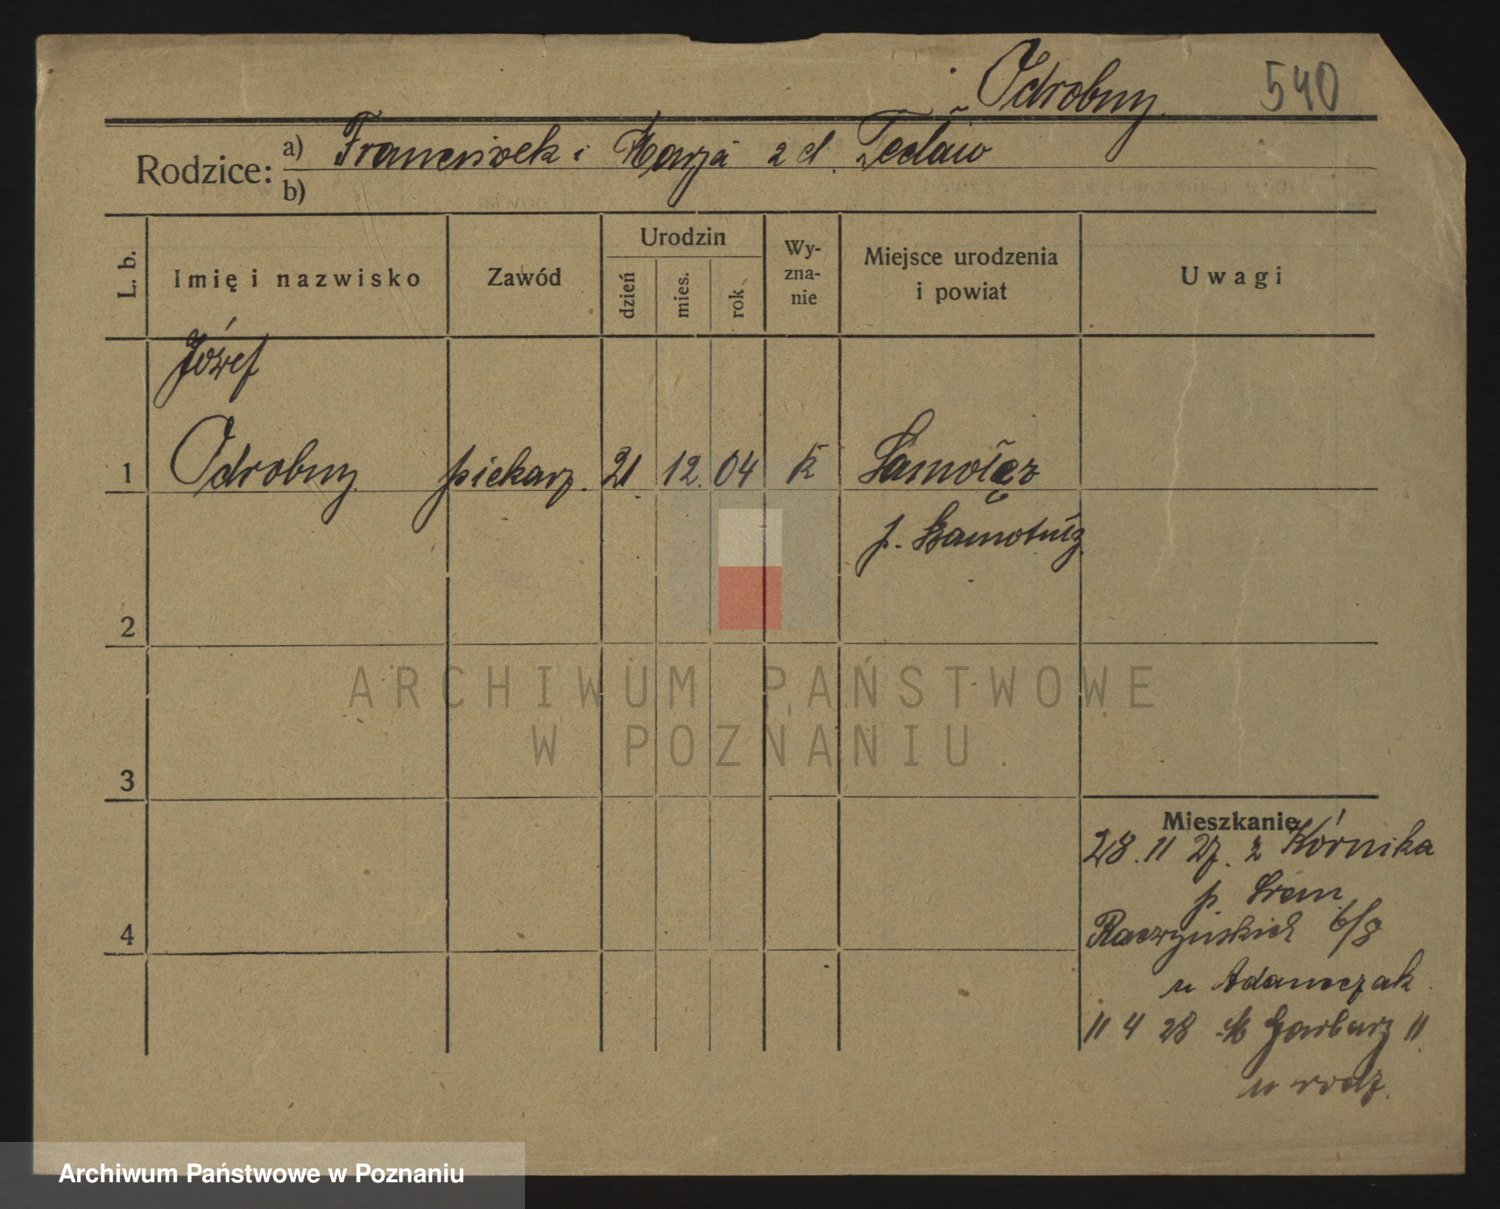 Odrobny 540
Rodzice: a) Franciszek i Marja z d.
b)
L. b. Imię i nazwisko Zawód Urodzin dzień mies. rok Wy-zna-nie Miejsce urodzenia i powiat Uwagi
Józef
1 Odrobny piekarz. 21 12. 04 K Samołęż
p. Szamotuły
2
3
Mieszkanie
28. 11 27. z Kórnika
p. Śrem
4 Raczyńskich 6/8
u Adamczak
11 4 28 Garbarz 11
u rodz.
ARCHIWUM PAŃSTWOWE
W POZNANIU
Archiwum Państwowe w Poznaniu